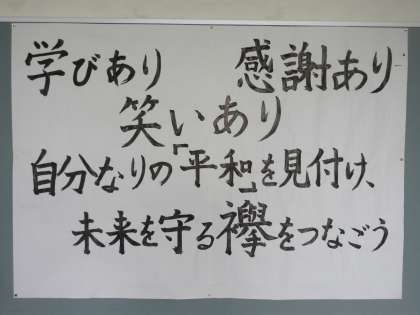 学びあり 感謝あり
笑いあり
自分なりの「平和」を見付け、
未来を守る襷をつなごう